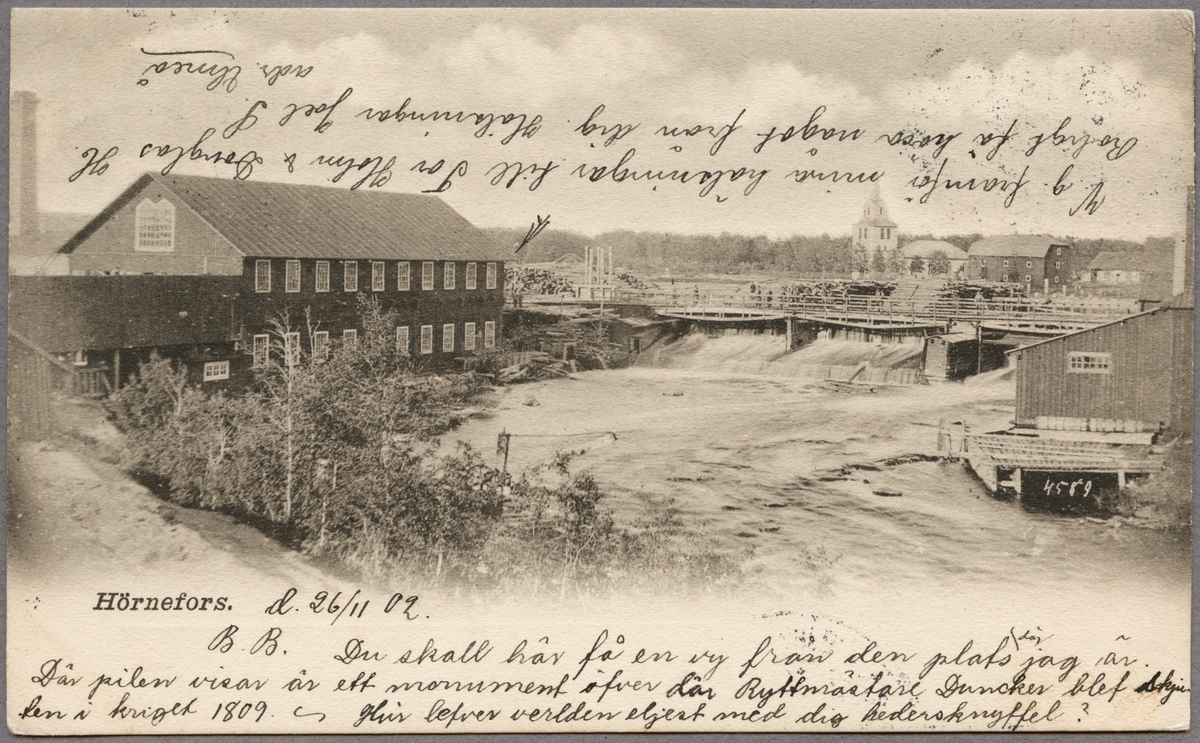 Hörnefors. d. 26/11 02.
B. B. Du skall här få en vy från den plats där jag är.
Där pilen visar är ett monument öfver där Ryttmästare Duncker blef skju-
ten i kriget 1809. Hur lefver verlden eljest med dig hedersknyffel?
V g. framför mina hälsningar till Tor Holm & Douglas H.
Roligt få höra något från dig. Hälsningar Joel S.
adr. Umeå
4589